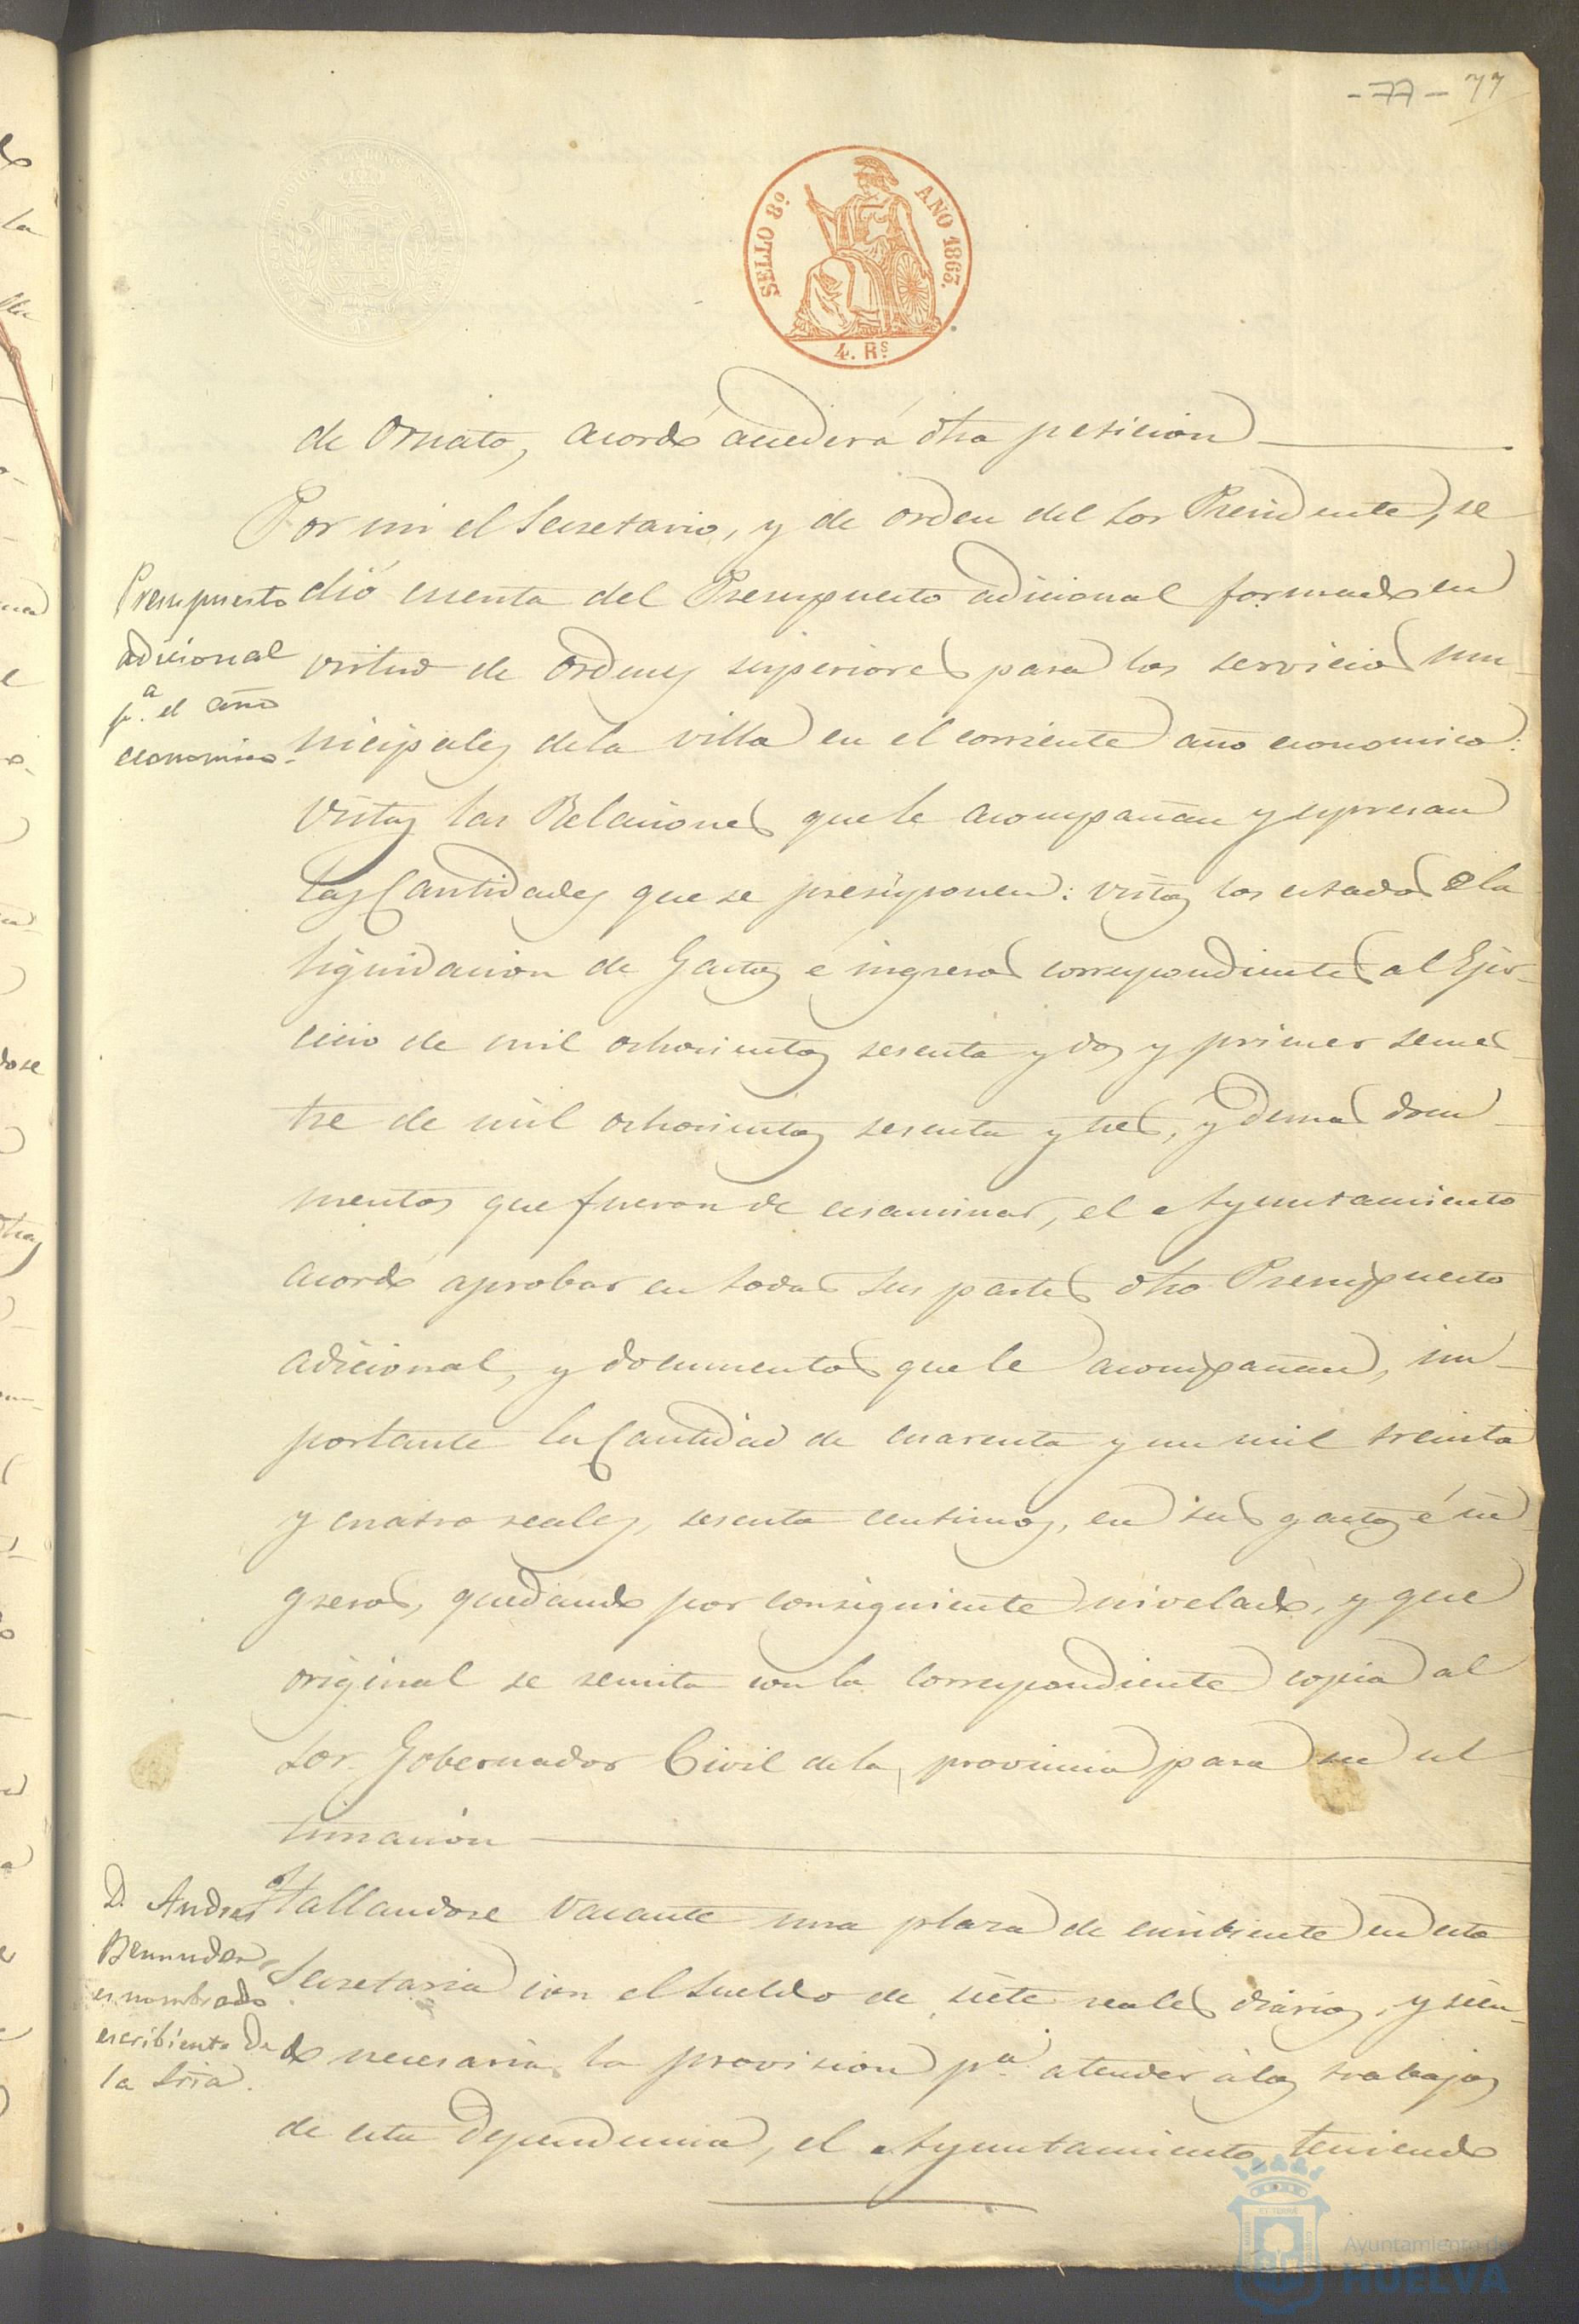 -77- 77
SELLO 8º AÑO 1863.
4. Rs
de Ornato, acordó accederá dha peticion
Por mi el Secretario, y de orden del Sor Presidente, se
Presupuesto
adicional
pª. el año
economico.
dió cuenta del Presupuesto adicional formado en
virtud de ordenes superiores para los servicios mu-
nicipales dela villa en el corriente año economico:
Vistas las Relaciones que le acompañan y espresan
las Cantidades que se presuponen: vistos los estados dela
liquidacion de Gastos é ingresos correspondientes al Ejer-
cicio de mil ochocientos sesenta y dos y primer semes-
tre de mil ochocientos sesenta y tres, y demas docu-
mentos que fueron de ecsaminar, el Ayuntamiento
acordó aprobar en todas sus partes dho Presupuesto
adicional, y documentos que le acompañan, im-
portante la Cantidad de cuarenta y un mil treinta
y cuatro reales, sesenta centimos, en sus gastos é in-
gresos, quedando por consiguiente nivelado, y que
original se remita con la correspondiente copia al
Sor. Gobernador Civil dela provincia para su ul-
timacion
D. Andres
Bermudez
es nombrado
escribiente de
la Sria.
Hallandose vacante una plaza de escribiente en esta
Secretaria con el sueldo de siete reales diarios, y sien-
do necesaria la provision pª. atender álos trabajos
de esta Dependencia, el Ayuntamiento teniendo
Ayuntamiento de
HUELVA